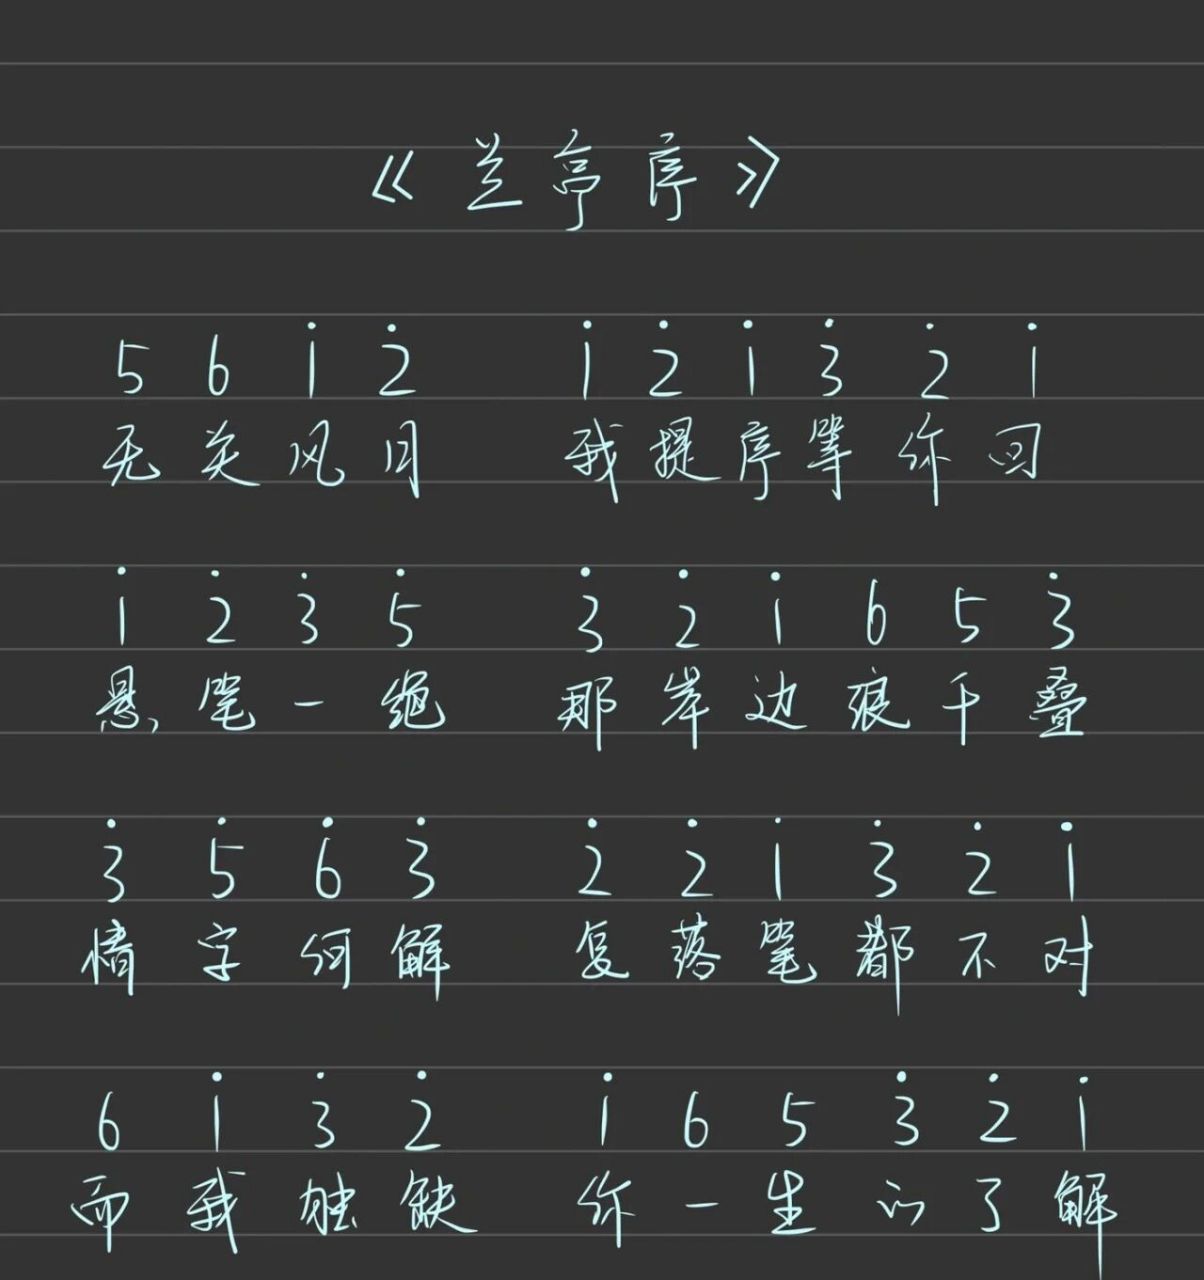 《兰亭序》
5 6 1̇ 2̇ 1̇ 2̇ 1̇ 3̇ 2̇ 1̇
无关风月 我提序等你回
1̇ 2̇ 3̇ 5̇ 3̇ 2̇ 1̇ 6 5 3̇
悬笔一绝 那岸边浪千叠
3̇ 5̇ 6̇ 3̇ 2̇ 2̇ 1̇ 3̇ 2̇ 1̇
情字何解 复落笔都不对
6 1̇ 3̇ 2̇ 1̇ 6 5 3̇ 2̇ 1̇
而我独缺 你一生的了解